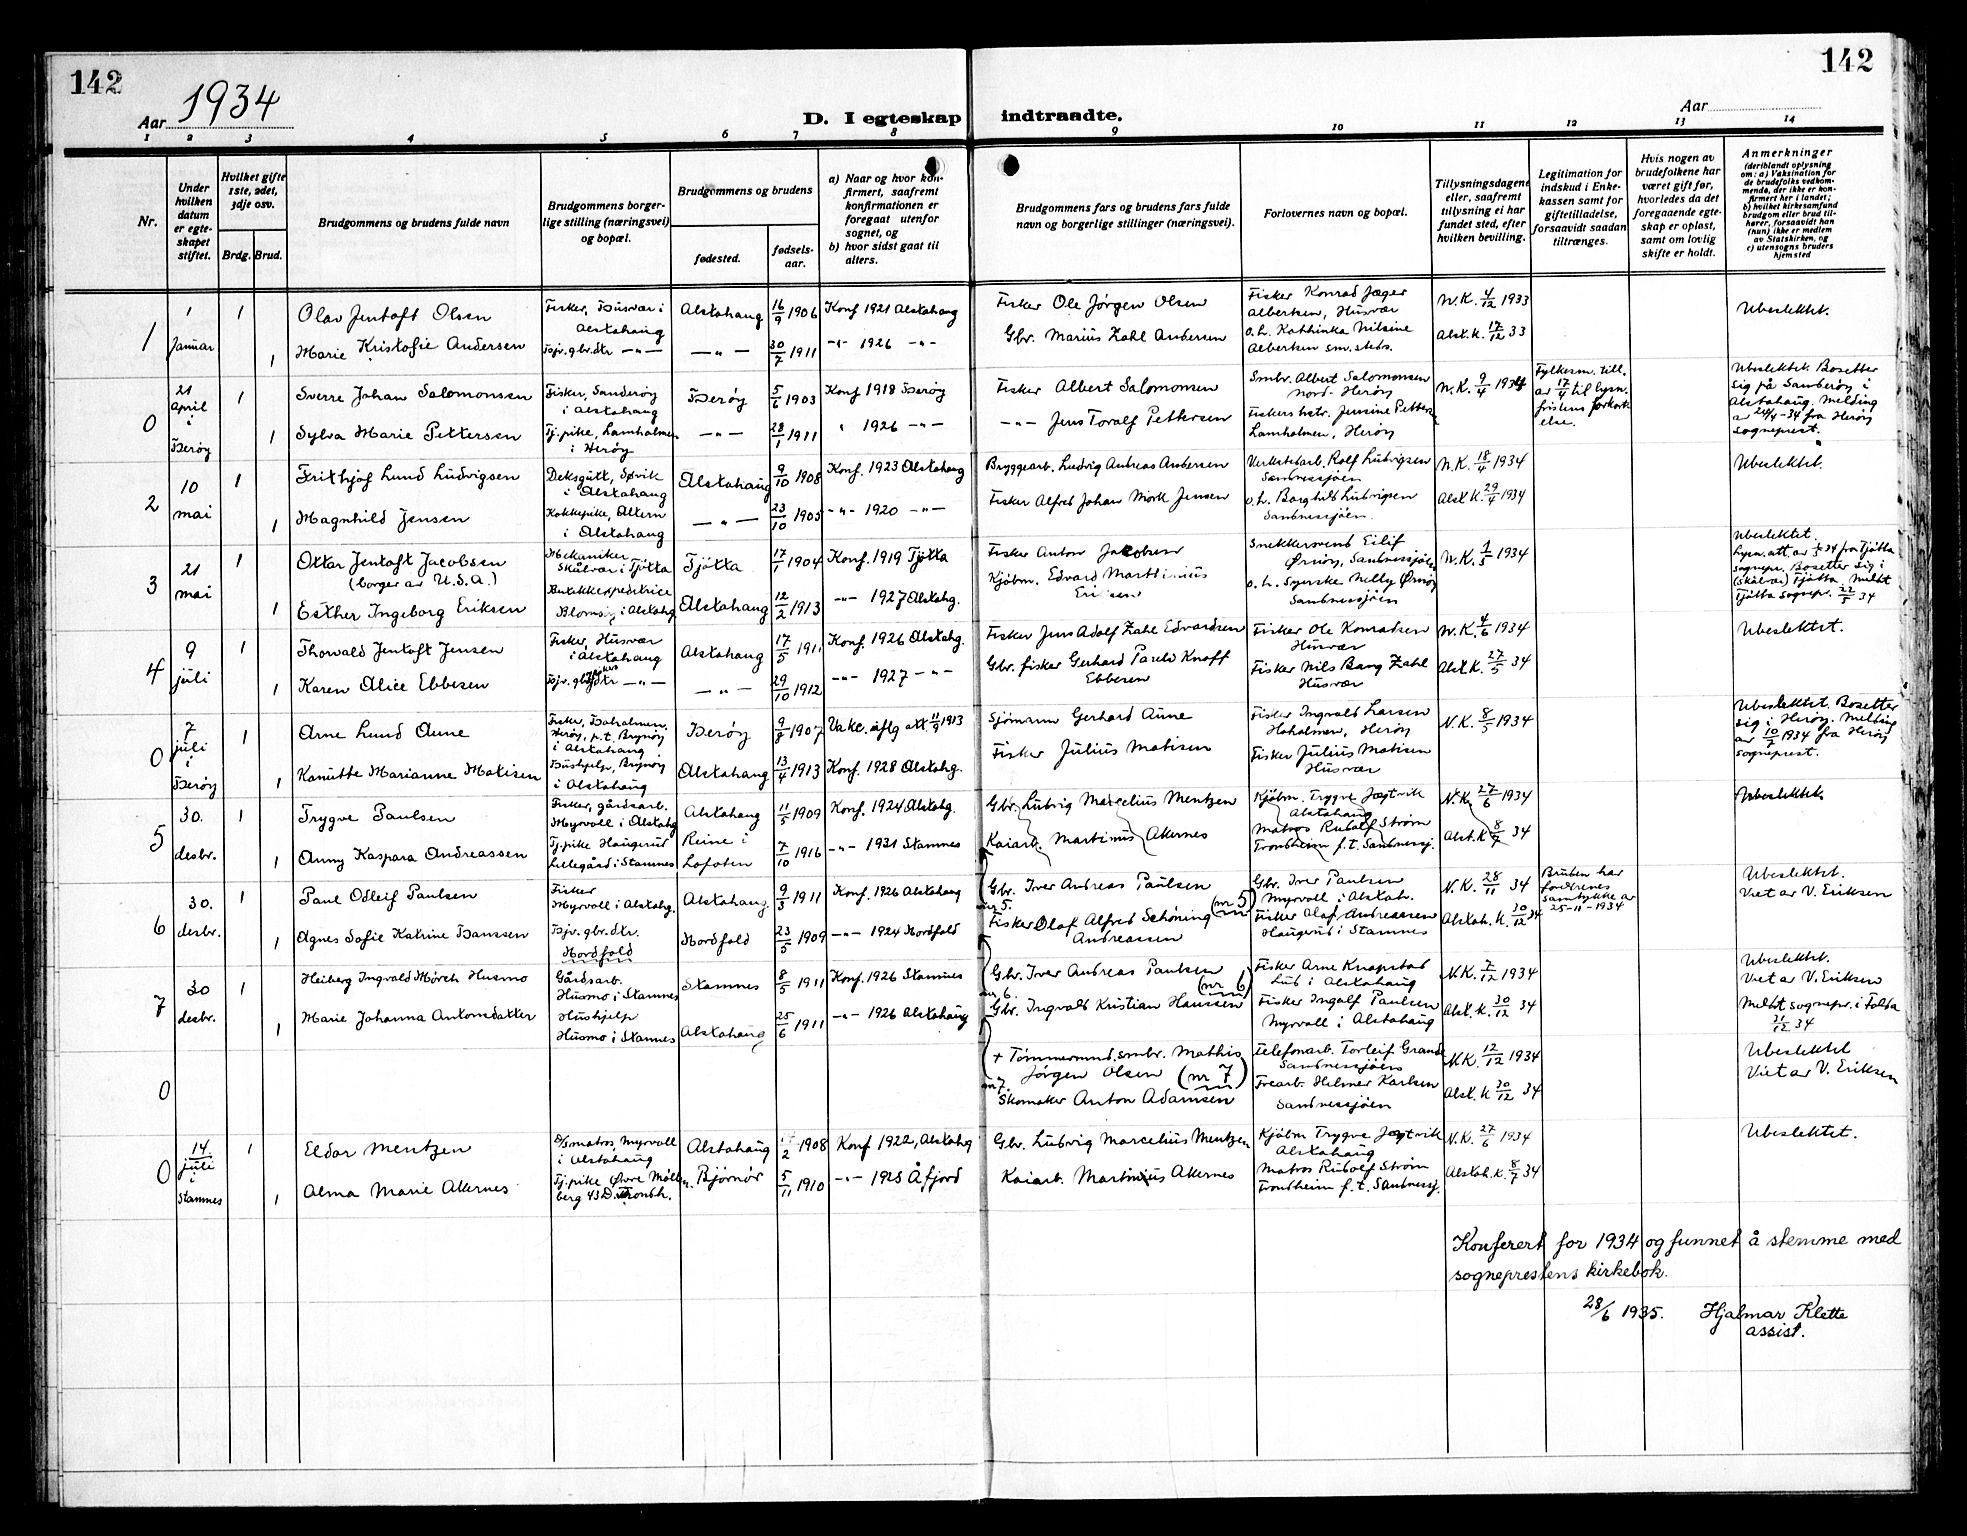 142
142
Aar 1934
D. I egteskap indtraadte.
Aar
1 2 3 4 5 6 7 8 9 10 11 12 13 14
Nr.
Under
hvilken
datum
er egte-
skapet
stiftet.
Hvilket gifte
1ste, 2det,
3dje osv.
Brdg. Brud.
Brudgommens og brudens fulde navn
Brudgommens borger-
lige stilling (næringsvei)
og bopæl.
Brudgommens og brudens
fødested.
fødsels-
aar.
a) Naar og hvor kon-
firmert, saafremt
konfirmationen er
foregaat utenfor
sognet, og
b) hvor sidst gaat til
alters.
Brudgommens fars og brudens fars fulde
navn og borgerlige stillinger (næringsvei).
Forlovernes navn og bopæl.
Tillysningsdagene
eller, saafremt
tillysning ei har
fundet sted, efter
hvilken bevilling.
Legitimation for
indskud i Enke-
kassen samt for
giftetilladelse,
forsaavidt saadan
tiltrænges.
Hvis nogen av
brudefolkene har
været gift før,
hvorledes da det
foregaaende egte-
skap er opløst,
samt om lovlig
skifte er holdt.
Anmerkninger
(deriblandt oplysning
om: a) Vaksination for
de brudefolks vedkom-
mende, der ikke er kon-
firmert her i landet;
b) hvilket kirkesamfund
brudgom eller brud til-
hører, forsaavidt han
(hun) ikke er medlem
av Statskirken, og
c) utensogns bruders
hjemsted
1
1
Januar
1
Olav Jentoft Olsen
Fisker, Husvær i
Alstahaug
Alstahaug
16/9 1906
Konf 1921 Alstahaug
Fisker Ole Jørgen Olsen
Fisker Konrad Jæger
Albertsen, Husvær
N.K. 4/12 1933
Ubeslektet.
1
Marie Kristofie Andersen
Hjv. gbr.dtr -"-
-"-
30/7 1911
-"- 1926 -"-
Gbr. Marius Zahl Andersen
o.h. Kathinka Nilsine
Albertsen sm.steds.
Alst.k. 17/12 33
0
21
april
i
Herøy
1
Sverre Johan Salomonsen
Fisker, Sanderøy
i Alstahaug
Herøy
5/6 1903
Konf 1918 Herøy
Fisker Albert Salomonsen
Smbr. Albert Salomonsen
Nord-Herøy
N.K. 9/4 1934
Fylkesm. till.
av 17/4 til lysn.
fristens forkort
else.
Ubeslektet Bosetter
sig på Sanderøy i
Alstahaug. Melding
av 24/4-34 fra Herøy
sogneprest.
1
Sylva Marie Pettersen
Tj.pike, Lamholmen
i Herøy
-"-
28/1 1911
" 1926 -"-
-"- Jens Toralf Pettersen
Fiskers hstr. Jensine Petters
Lamholmen, Herøy
2
10
mai
1
Frithjof Lund Ludvigsen
Deksgutt, Søvik
i Alstahaug
Alstahaug
9/10 1908
Konf. 1923 Alstahaug
Bryggearb. Ludvig Andreas Andersen
Verkstedarb. Rolf Ludvigsen
Sandnessjøen
N.K. 18/4 1934
Ubeslektet.
1
Magnhild Jensen
Kokkepike, Altern
i Alstahaug
-"-
23/10 1905
-"- 1920 -"-
Fisker Alfred Johan Mørk Jensen
o.h. Borghild Ludvigsen
Sandnessjøen.
Alst K. 29/4 1934
3
21
mai
1
Ottar Jentoft Jacobsen
(borger av U.S.A.)
Mekaniker
Skålvær i Tjøtta
Tjøtta
17/1 1904
Konf. 1919 Tjøtta
Fisker Anton Jacobsen
Snekkersvend Eilif
Ørnøy, Sandnessjøen
N.K. 1/5 1934
Ubeslektet.
Lysn.att. av 1/5 34 fra Tjøtta
sognepr. Bosetter sig i
(Skålvær) Tjøtta. Meldt
Tjøtta sognepr. 22/5 34
1
Esther Ingeborg Eriksen
Butikkexpeditrice
Blomsøy i Alstahg
Alstahaug
12/2 1913
-"- 1927 Alstahg.
Kjøbm. Edvard Martinius
Eriksen
o.h. Synske Nelly Ørnøy
Sandnessjøen
4
9
juli
1
Thorvald Jentoft Jensen
Fisker, Husvær
i Alstahaug
Alstahaug
17/5 1911
Konf. 1926 Alstahg.
Fisker Jens Adolf Zahl Edvardsen
Fisker Ole Konradsen
Husvær
N.K. 4/6 1934
Ubeslektet.
1
Karen Alice Ebbesen
Hjv. gbr.fiskersdtr -"-
-"-
29/10 1912
-"- 1927 -"-
Gbr. fisker Gerhard Parelo Knoff
Ebbesen
Fisker Nils Bang Zahl
Husvær
Alst.K. 27/5 34
0
7
juli
i
Herøy
1
Arne Lund Aune
Fisker, Hoholmen,
Herøy, p.t. Brynøy
i Alstahaug
Herøy
9/8 1907
Vakc. iflg att 11/9 1913
Sjømann Gerhard Aune
Fisker Ingvald Larsen
Hoholmen, Herøy
N.K. 8/5 1934
Ubeslektet. Bosetter
sig i Herøy. Melding
av 10/7 1934 fra Herøy
sogneprest.
1
Kanutte Marianne Matisen
Hushjelp, Brynøy
i Alstahaug
Alstahaug
13/4 1913
Konf. 1928 Alstahg.
Fisker Julius Matisen
Fisker Julius Matisen
Husvær
5
30.
desbr.
1
Trygve Paulsen
Fisker, gårdsarb.
Myrvoll i Alstahg
Alstahaug
11/5 1909
Konf. 1924 Alstahg.
Gbr. Ludvig Marcelius Mentzen
Kjøbm. Trygve Jægtvik
Alstahaug
N.K. 27/6 1934
Ubeslektet.
1
Anny Kaspara Andreassen
Tj.pike Haugerud
Lillegård i Stamnes
Reine i
Lofoten
7/10 1916
-"- 1931 Stamnes
Kaiarb. Martinus Akernes
Matros Rudolf Strøm
Trondheim f.t. Sandnessj.
Alst.k 8/7 34
6
30.
desbr.
1
Paul Odleif Paulsen
Fisker
Myrvoll i Alstahg.
Alstahaug
9/3 1911
Konf. 1926 Alstahaug
Gbr. Iver Andreas Paulsen
nr 5. (nr 5)
Gbr. Iver Paulsen
Myrvoll i Alstah.
N.K. 28/11 34
Bruden har
foreldrenes
samtykke av
25-11-1934
Ubeslektet.
Viet av V. Eriksen
1
Agnes Sofie Katrine Hanssen
Hjv. gbr. dtr.
Nordfold
Nordfold
23/5 1909
-"- 1924 Nordfold
Fisker Olaf Alfred Schöning
Andreassen
Fisker Olaf Andreassen
Haugerud i Stamnes
Alstah. K. 30/12 34
7
30
desbr.
1
Heiberg Ingvald Mörch Husmo
Gårdsarb.
Husmo i Stamnes
Stamnes
8/5 1911
Konf. 1926 Stamnes
Gbr. Iver Andreas Paulsen
nr 6. (nr 6)
Fisker Arne Knapstad
Lud i Alstahaug
N.K. 7/12 1934
Ubeslektet.
Viet av V. Eriksen
Meldt sognepr. i Folda
31/12 34
1
Marie Johanna Antonsdatter
Hushjelp
Husmo i Stamnes
Alstahaug
25/6 1911
-"- 1926 Alstahaug
Gbr. Ingvald Kristian Hanssen
Fisker Ingolf Paulsen
Myrvoll i Alstahaug
Alst.K. 30/12 34
0
+ Tømmermand. smbr. Mathis
Jörgen Olsen (nr 7)
nr 7.
Skomaker Anton Adamsen
Telefonarb. Torleif Grande
Sandnessjøen
Trearb. Helmer Karlsen
Sandnessjöen
N.K. 12/12 1934
Alst.k 30/12 34
Ubeslektet
Viet av V. Eriksen
0
14.
juli
i
Stamnes
1
Eldor Mentzen
D/S matros, Myrvoll
i Alstahaug
Alstahaug
17/2 1908
Konf 1922, Alstahg
Gbr. Ludvig Marcelius Mentzen
Kjøbm Trygve Jægtvik
Alstahaug
N.K. 27/6 1934
Ubeslektet.
1
Alma Marie Akernes
Tj.pike Øvre Møllen
berg 43 D. Trondh.
Bjørnør
5/11 1910
-"- 1925 Åfjord
Kaiarb. Martinius Akernes
Matros Rudolf Strøm
Trondheim f.t. Sandnessj.
Alstah.k. 8/7 34
Konferert for 1934 og funnet å stemme med
sogneprestens kirkebok.
28/6 1935. Hjalmar Klette
assist.